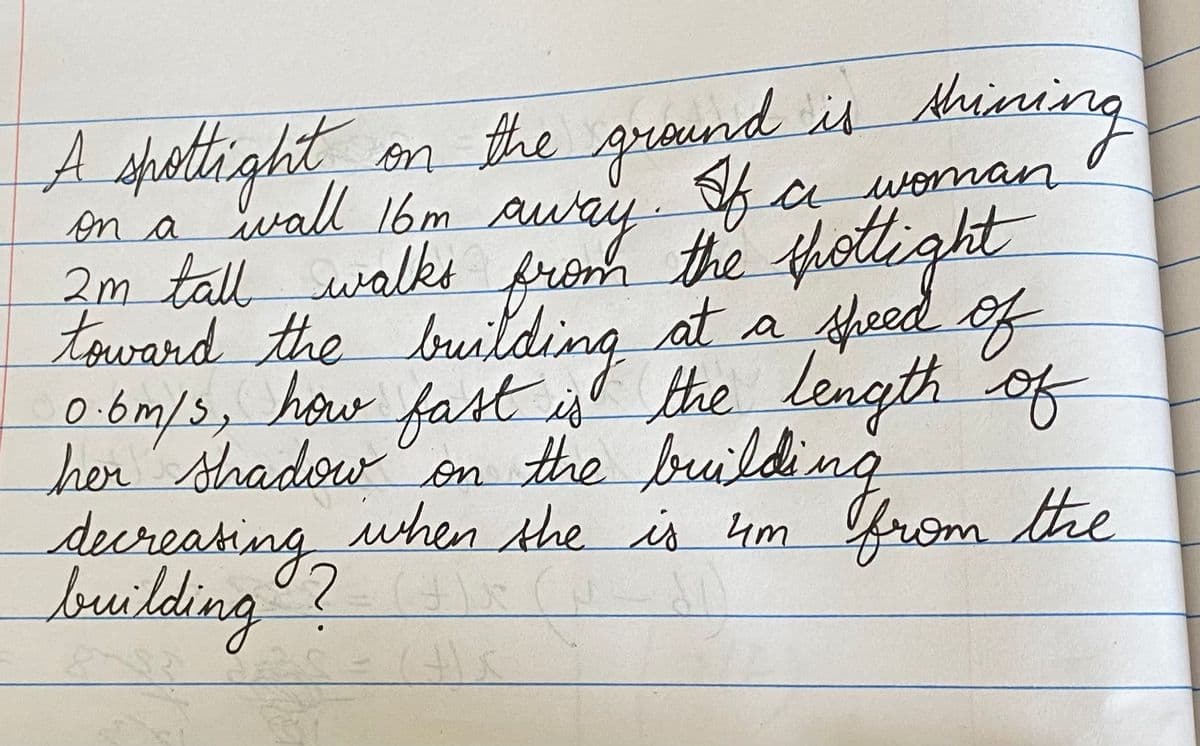 A spotlight on the ground is shining
on a wall 16m away. If a woman
2m tall walks from the spotlight
toward the building at a speed of
0.6m/s, how fast is the length of
her shadow on the building
decreasing when she is 4m from the
building?